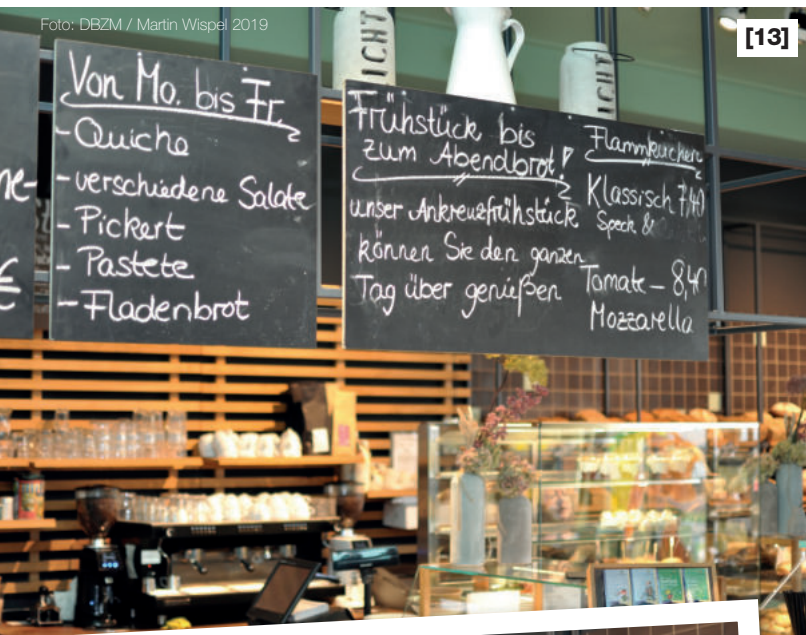 Foto: DBZM / Martin Wispel 2019
[13]
ICHT
ICHT
ne-
€
Von Mo. bis Fr.
- Quiche
- verschiedene Salate
- Pickert
- Pastete
- Fladenbrot
Frühstück bis
zum Abendbrot!
unser Ankreuzfrühstück
können Sie den ganzen
Tag über genießen
Flammkuchen
Klassisch 7,40
Speck &
Tomate – 8,40
Mozzarella